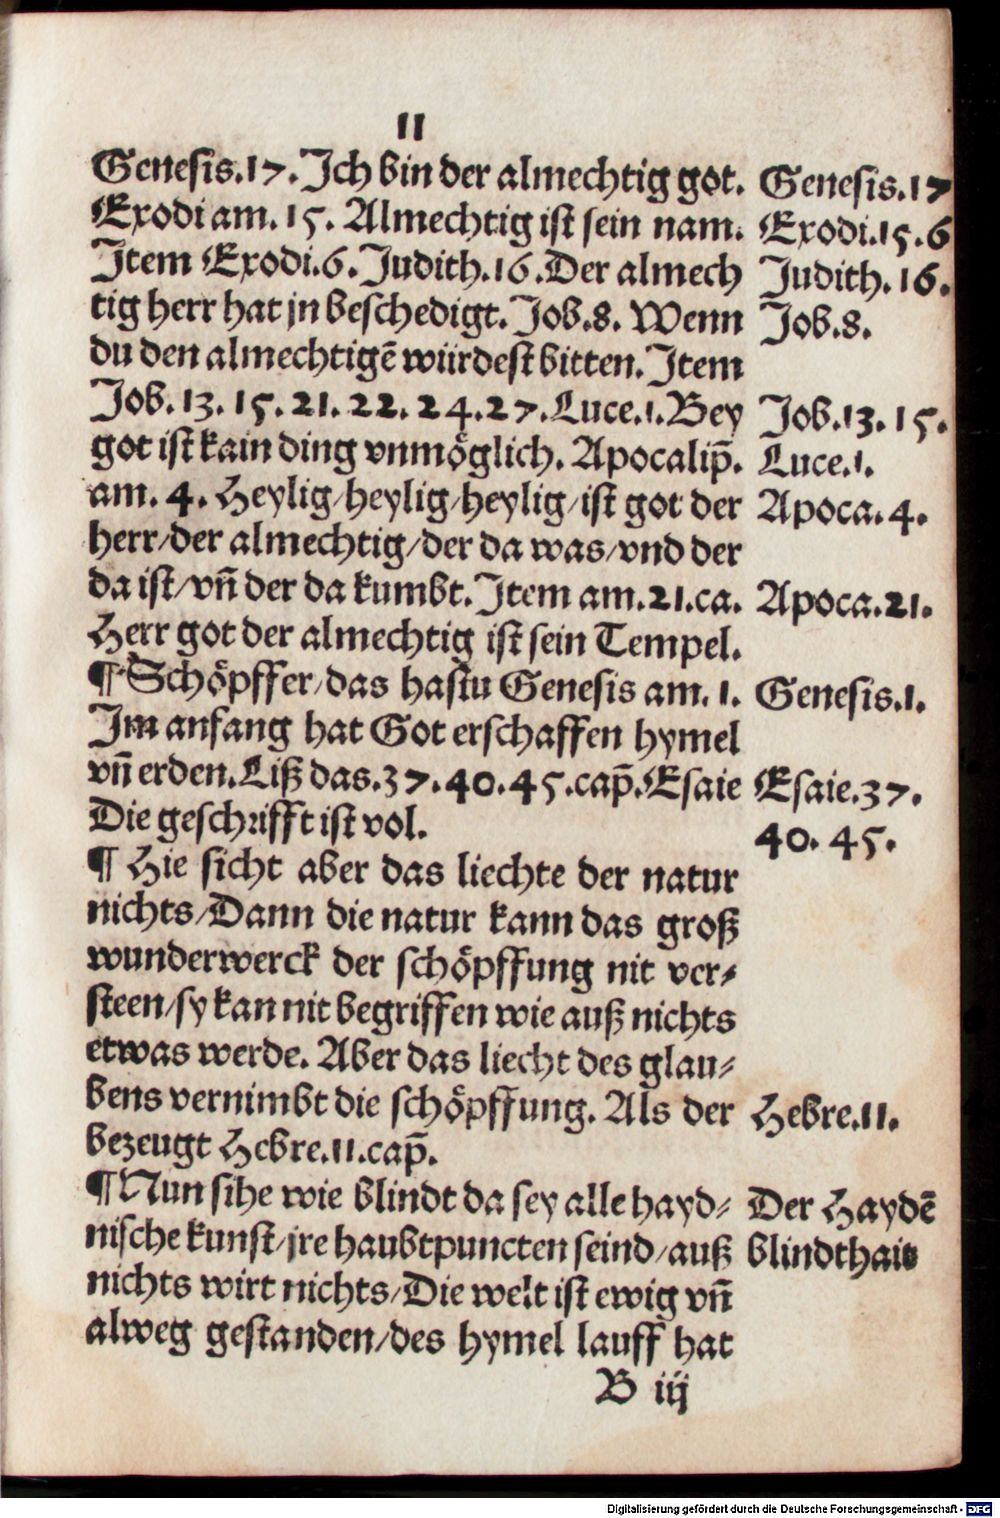 11
Genesis.17. Ich bin der almechtig got.
Exodi am. 15. Almechtig ist sein nam.
Item Exodi.6. Judith.16. Der almech
tig herr hat jn beschedigt. Job.8. Wenn
du den almechtigē würdest bitten. Item
Job. 13. 15. 21. 22. 24. 27. Luce.1. Bey
got ist kain ding vnmöglich. Apocalip̄.
am. 4. Heylig/heylig/heylig/ist got der
herr/der almechtig/der da was/vnd der
da ist/vn̄ der da kumbt. Item am.21.ca.
Herr got der almechtig ist sein Tempel.
¶ Schöpffer/das hastu Genesis am. 1.
Im anfang hat Got erschaffen hymel
vn̄ erden. Liß das.37.40.45.cap̄. Esaie
Die geschrifft ist vol.
¶ Hie sicht aber das liechte der natur
nichts/Dann die natur kann das groß
wunderwerck der schöpffung nit ver⸗
steen/sy kan nit begriffen wie auß nichts
etwas werde. Aber das liecht des glau⸗
bens vernimbt die schöpffung. Als der
bezeugt Hebre.11.cap̄.
¶ Nun sihe wie blindt da sey alle hayd⸗
nische kunst/jre haubtpuncten seind/auß
nichts wirt nichts/Die welt ist ewig vn̄
alweg gestanden/des hymel lauff hat
B iij
Genesis.17
Exodi.15.6
Judith. 16.
Job.8.
Job.13. 15.
Luce.1.
Apoca. 4.
Apoca.21.
Genesis.1.
Esaie.37.
40. 45.
Hebre.11.
Der Haydē
blindthait
Digitalisierung gefördert durch die Deutsche Forschungsgemeinschaft - DFG